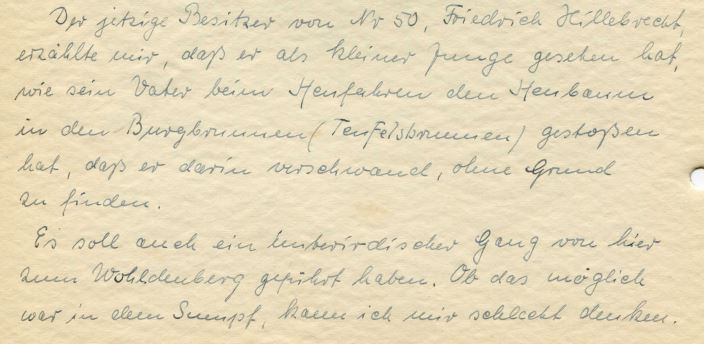 Der jetzige Besitzer von Nr 50, Friedrich Hillebrecht,
erzählte mir, daß er als kleiner Junge gesehen hat,
wie sein Vater beim Heufahren den Heubaum
in den Burgbrunnen (Teufelsbrunnen) gestoßen
hat, daß er darin verschwand, ohne Grund
zu finden.
Es soll auch ein unterirdischer Gang von hier
zum Wohldenberg geführt haben. Ob das möglich
war in dem Sumpf, kann ich mir schlecht denken.